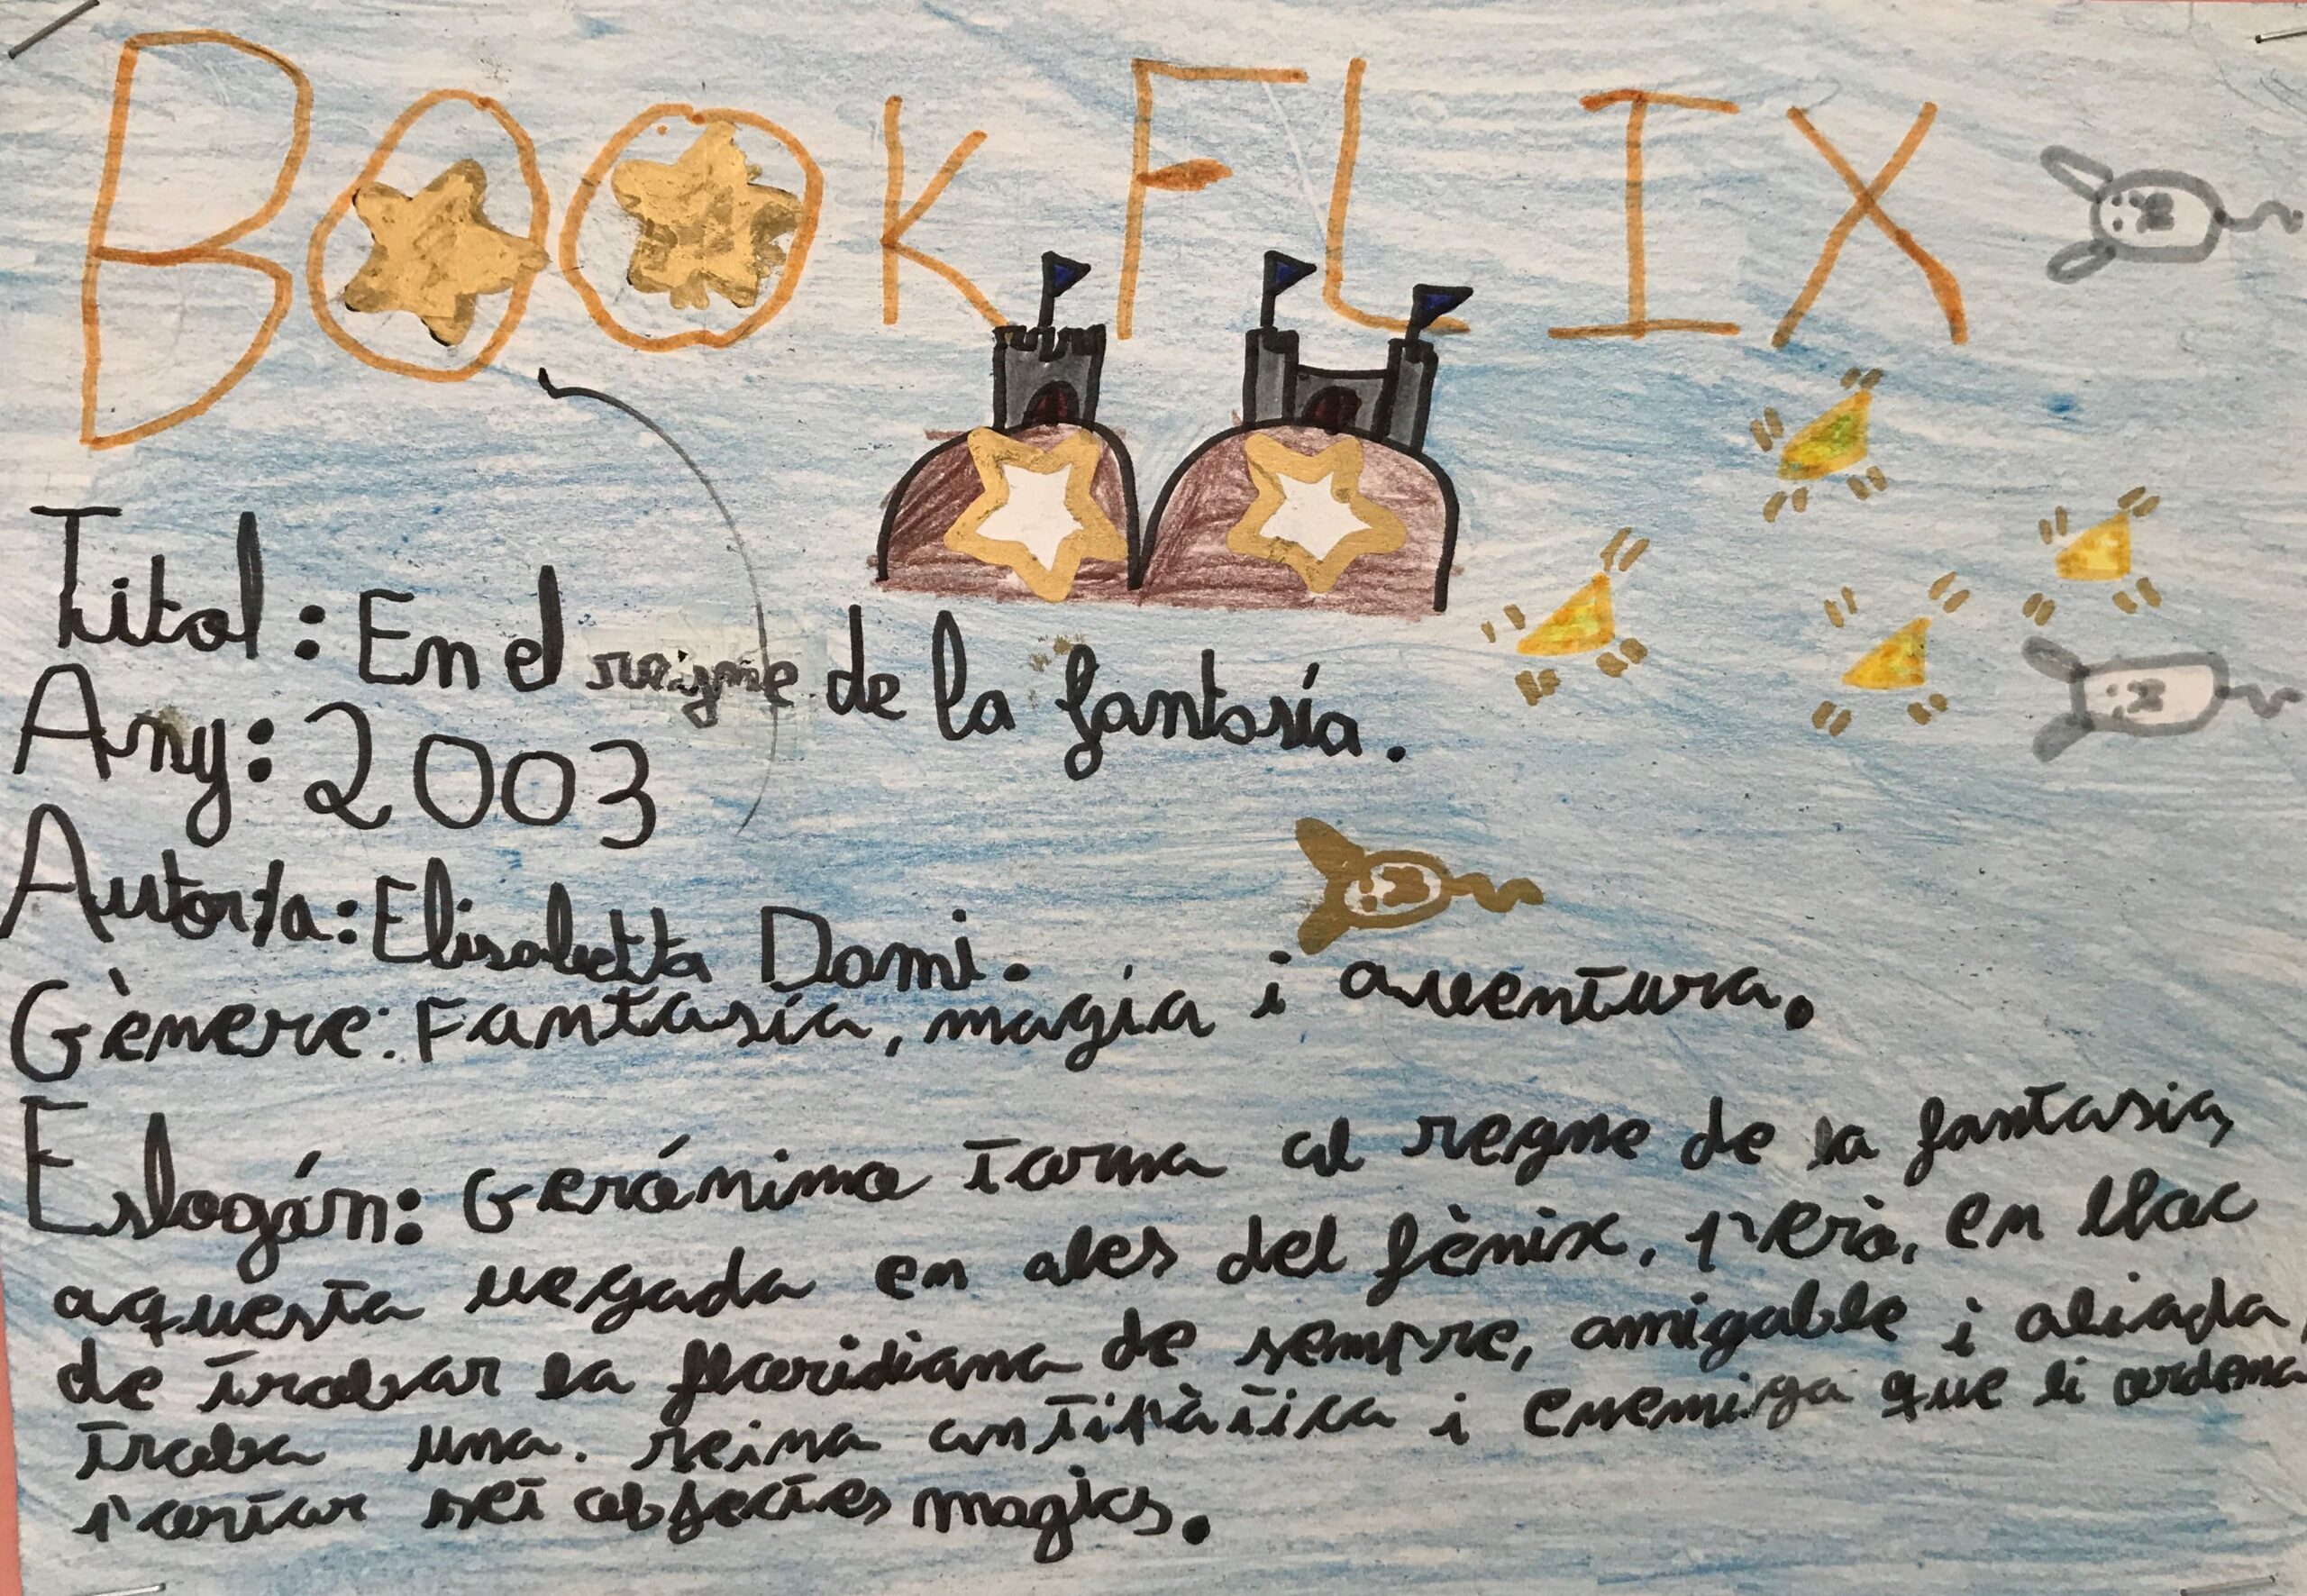 BOOKFLIX
Titol: En el reigne de la fantasía.
Any: 2003
Autor/a: Elisabetta Dami.
Gènere: Fantasía, magía i aventura.
Eslogán: Gerónimo torna al regne de la fantasia,
aquesta vegada en ales del fènix, però, en lloc
de trobar la floridiana de sempre, amigable i aliada,
troba una. reina antipàtica i enemiga que li ordena
portar set objectes magics.